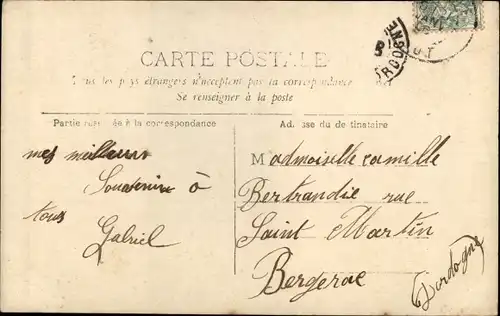 CARTE POSTALE
Tous les pays étrangers n'acceptent pas la correspondance
Se renseigner à la poste
Partie réservée à la correspondance
Adresse du destinataire
mes meilleurs
Souvenirs à
tous
Gabriel
Madmoiselle camille
Bertrandie rue
Saint Martin
Bergerac
(Dordogne)